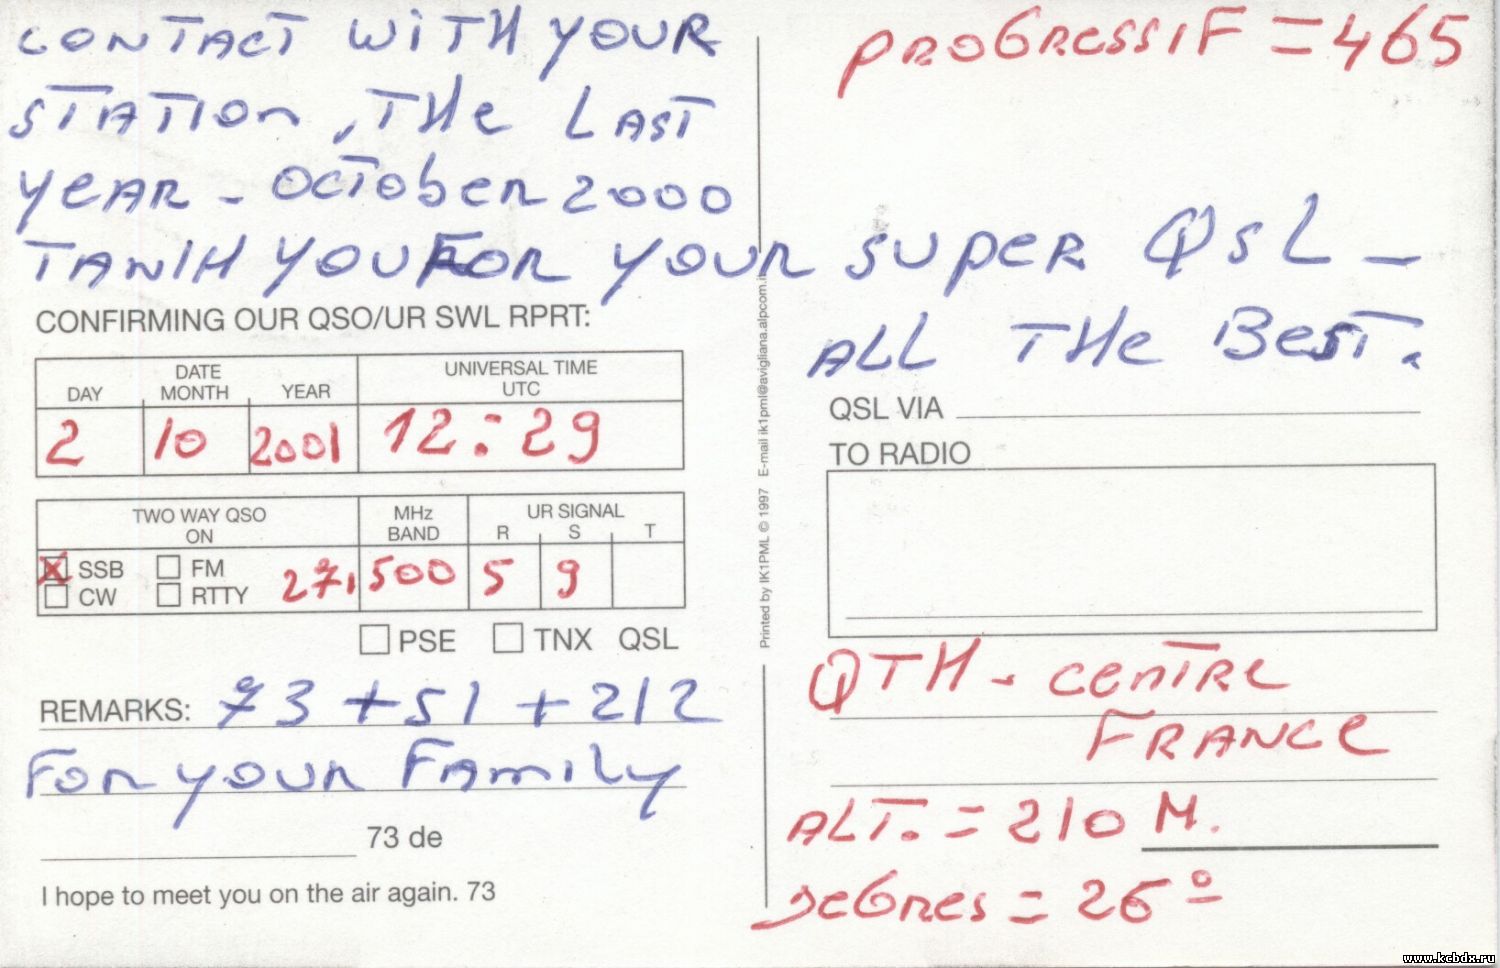 CONTACT WITH YOUR
STATION, THE LAST
YEAR - OCTOBER 2000
TANIH YOU FOR YOUR SUPER QSL -
ALL THE BEST.
PROGRESSIF = 465
CONFIRMING OUR QSO/UR SWL RPRT:
DAY DATE MONTH YEAR UNIVERSAL TIME UTC
2 10 2001 12:29
TWO WAY QSO ON MHz BAND UR SIGNAL R S T
X SSB FM 27,500 5 9
CW RTTY
PSE TNX QSL
REMARKS: 73 + 51 + 212
FOR YOUR FAMILY
73 de
I hope to meet you on the air again. 73
Printed by IK1PML © 1997 E-mail ik1pml@avigliana.alpcom.i
QSL VIA
TO RADIO
QTH - CENTRE
FRANCE
ALT. = 210 M.
DEGRES = 26°
www.kcbdx.ru